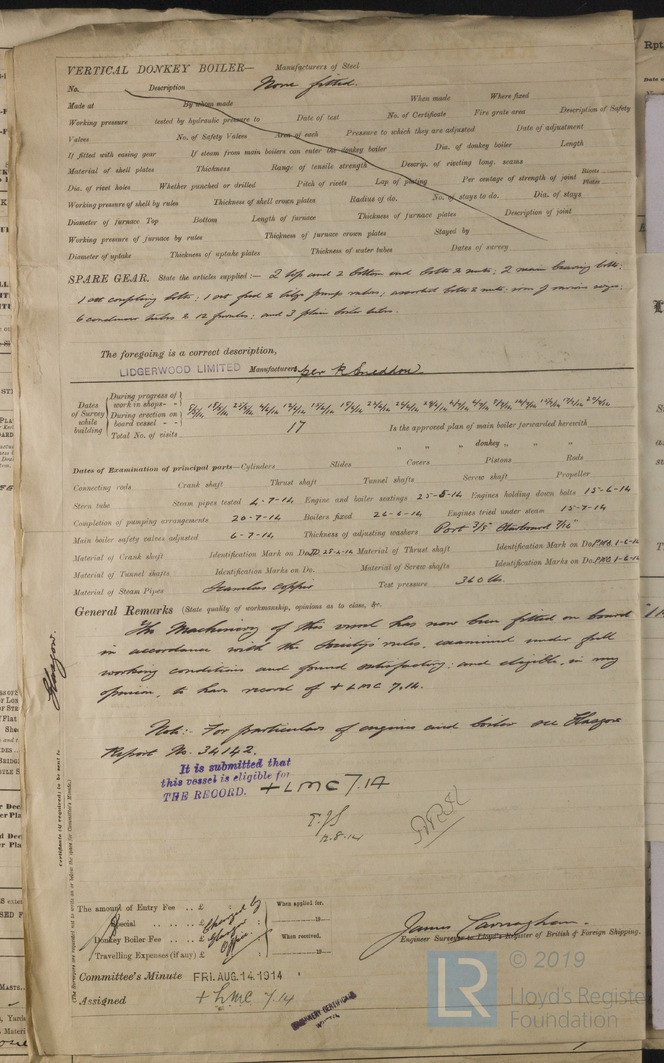 VERTICAL DONKEY BOILER— Manufacturers of Steel
No. Description None fitted.
Made at By whom made When made Where fixed
Working pressure tested by hydraulic pressure to Date of test No. of Certificate Fire grate area Description of Safety
Valves No. of Safety Valves Area of each Pressure to which they are adjusted Date of adjustment
If fitted with easing gear If steam from main boilers can enter the donkey boiler Dia. of donkey boiler Length
Material of shell plates Thickness Range of tensile strength Descrip. of riveting long. seams
Dia. of rivet holes Whether punched or drilled Pitch of rivets Lap of plating Per centage of strength of joint Rivets Plates
Working pressure of shell by rules Thickness of shell crown plates Radius of do. No. of stays to do. Dia. of stays
Diameter of furnace Top Bottom Length of furnace Thickness of furnace plates Description of joint
Working pressure of furnace by rules Thickness of furnace crown plates Stayed by
Diameter of uptake Thickness of uptake plates Thickness of water tubes Dates of survey
SPARE GEAR. State the articles supplied:— 2 top and 2 bottom end bolts & nuts; 2 main bearing bolts;
1 set coupling bolts; 1 set feed & bilge pump valves; assorted bolts & nuts; iron of various sizes;
6 condenser tubes & 12 ferrules; and 3 plain boiler tubes.
The foregoing is a correct description,
LIDGERWOOD LIMITED Manufacturer. per R Sneddon.
Dates of Survey while building
During progress of work in shops- -
During erection on board vessel - -
Total No. of visits 17
Is the approved plan of main boiler forwarded herewith
" " " donkey " " "
Dates of Examination of principal parts—Cylinders Slides Covers Pistons Rods
Connecting rods Crank shaft Thrust shaft Tunnel shafts Screw shaft Propeller
Stern tube Steam pipes tested 4-7-14 Engine and boiler seatings 25-5-14 Engines holding down bolts 15-6-14
Completion of pumping arrangements 20-7-14 Boilers fixed 26-6-14 Engines tried under steam 15-7-14
Main boiler safety valves adjusted 6-7-14 Thickness of adjusting washers Port 3/8" Starboard 7/16"
Material of Crank shaft Identification Mark on Do. Material of Thrust shaft Identification Mark on Do.
Material of Tunnel shafts Identification Marks on Do. Material of Screw shafts Identification Marks on Do.
Material of Steam Pipes Seamless copper Test pressure 360 lbs.
General Remarks (State quality of workmanship, opinions as to class, &c.
The Machinery of this vessel has now been fitted on board
in accordance with the Society's rules, examined under full
working conditions and found satisfactory; and eligible, in my
opinion, to have record of + LMC 7,14.
Note:- For particulars of engines and boiler see Glasgow
Report No. 34142.
It is submitted that
this vessel is eligible for
THE RECORD. + LMC 7.14
12.8.14
Glasgow.
Certificate (if required) to be sent to
(The Surveyors are requested not to write on or below the space for Committee's Minute.)
The amount of Entry Fee .. £ : : When applied for.
Special .. .. .. £ : :
Donkey Boiler Fee .. .. £ : : When received.
Travelling Expenses (if any) £ : :
James Carnaghan.
Engineer Surveyor to Lloyd's Register of British & Foreign Shipping.
Committee's Minute FRI. AUG. 14 1914
Assigned + LMC 7.14
MACHINERY CERTIFICATE
WRITTEN
LR
© 2019
Lloyd's Register
Foundation